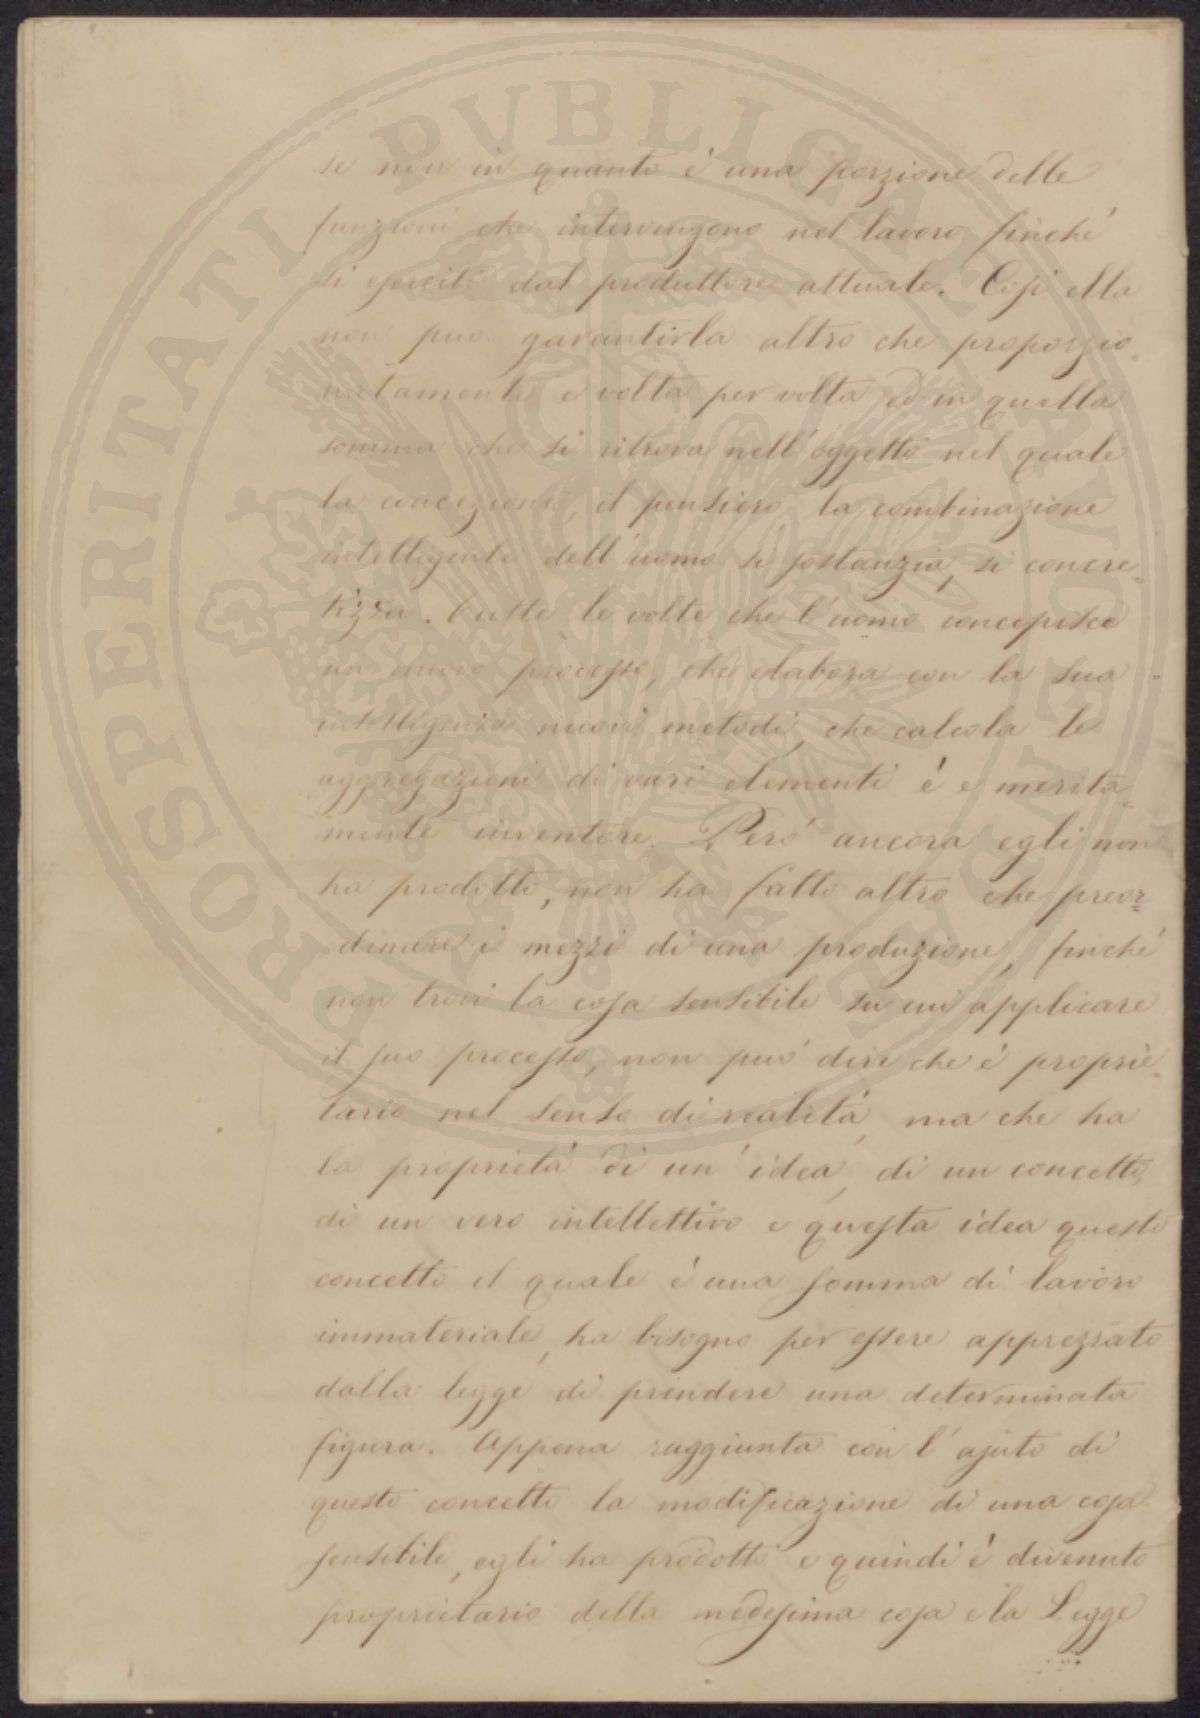 PROSPERITATI PVBLICAE
se non in quanto é una porzione delle
funzioni che intervengono nel lavoro finché
si eserciti dal produttore attuale. Cosi ella
non puo garantirla altro che proporzio
natamente e volta per volta ed in quella
somma che si ritrova nell'oggetto nel quale
la concezione, il pensiero, la combinazione
intelligente dell'uomo si sostanzia, si concre-
tizza. Tutte le volte che l'uomo concepisce
un nuovo processo, che elabora con la sua
intelligenza nuovi metodi, che calcola le
aggregazioni di varj elementi é e merita-
mente inventore. Peró ancora egli non
ha prodotto, non ha fatto altro che preor-
dinare i mezzi di una produzione, finché
non trovi la cosa sensibile su cui applicare
il suo processo, non puó dire che é proprie-
tario nel senso di realitá, ma che ha
la proprietá di un'idea, di un concetto,
di un vero intellettivo e questa idea questo
concetto il quale é una somma di lavoro
immateriale, ha bisogno per essere apprezzato
dalla legge di prendere una determinata
figura. Appena raggiunta con l'ajuto di
questo concetto la modificazione di una cosa
sensibile, egli ha prodotto e quindi é divenuto
proprietario della medesima cosa e la Legge